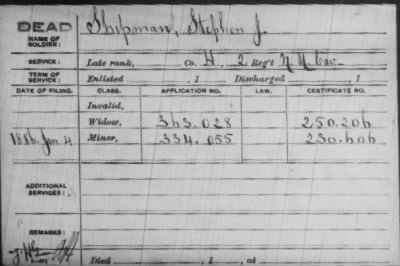 DEAD Shipman, Stephen J.
NAME OF SOLDIER:
SERVICE: Late rank, co. H, 2 Reg't N.Y. Cav
TERM OF SERVICE: Enlisted , 1 Discharged , 1
DATE OF FILING. CLASS. APPLICATION NO. LAW. CERTIFICATE NO.
Invalid,
Widow, 363.028 250.206
1886. Jan 4 Minor, 334.055 230.606
ADDITIONAL SERVICES:
REMARKS:
Died , 1 , at